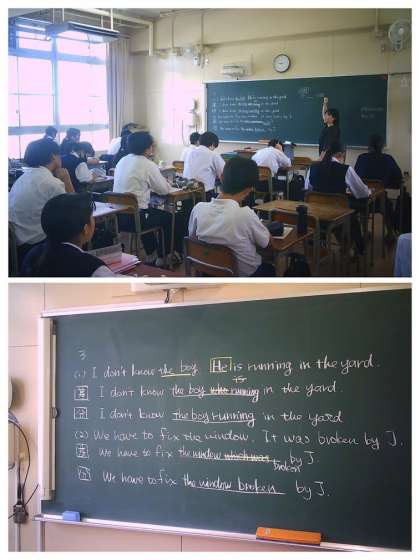 3
(1) I don't know the boy He is running in the yard.
I don't know the boy who is running in the yard.
I don't know the boy running in the yard
(2) We have to fix the window. It was broken by J.
We have to fix the window which was broken by J.
We have to fix the window broken by J.